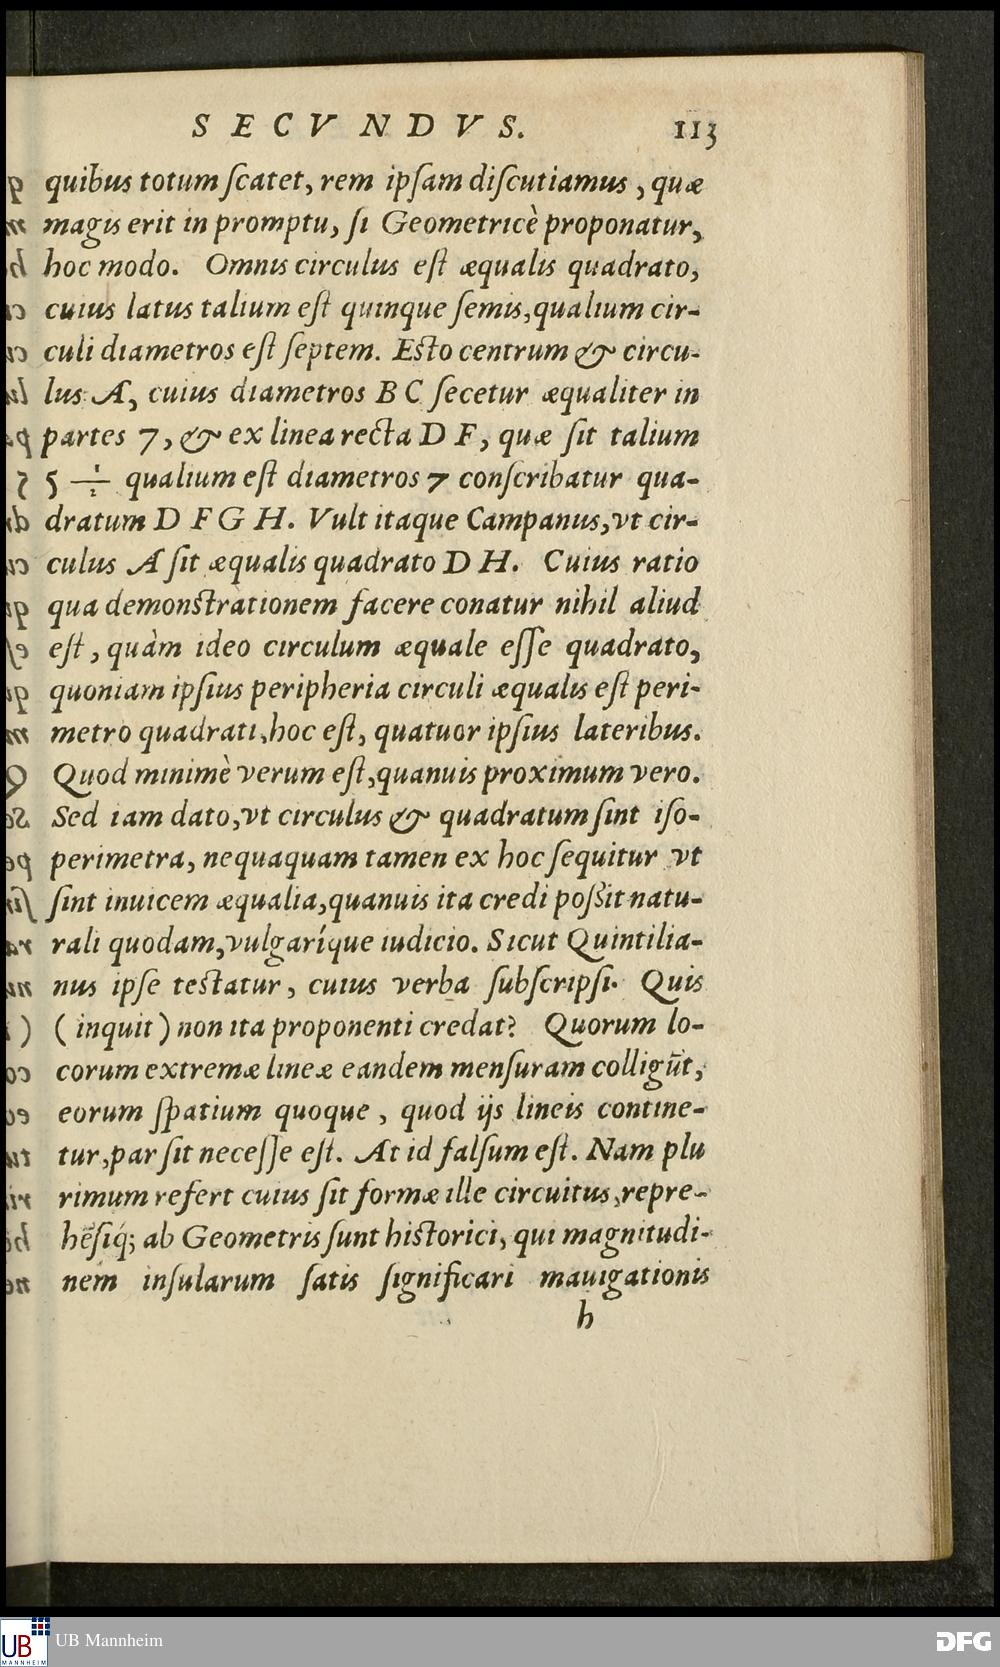 SECVNDVS. 113
quibus totum ſcatet, rem ipſam diſcutiamus, quæ
magis erit in promptu, ſi Geometricè proponatur,
hoc modo. Omnis circulus eſt æqualis quadrato,
cuius latus talium eſt quinque ſemis, qualium cir-
culi diametros eſt ſeptem. Eſto centrum & circu-
lus A, cuius diametros B C ſecetur æqualiter in
partes 7, & ex linea recta D F, quæ ſit talium
5 1/2 qualium eſt diametros 7 conſcribatur qua-
dratum D F G H. Vult itaque Campanus, vt cir-
culus A ſit æqualis quadrato D H. Cuius ratio
qua demonſtrationem facere conatur nihil aliud
eſt, quàm ideo circulum æquale eſſe quadrato,
quoniam ipſius peripheria circuli æqualis eſt peri-
metro quadrati, hoc eſt, quatuor ipſius lateribus.
Quod minimè verum eſt, quanuis proximum vero.
Sed iam dato, vt circulus & quadratum ſint iſo-
perimetra, nequaquam tamen ex hoc ſequitur vt
ſint inuicem æqualia, quanuis ita credi poßit natu-
rali quodam, vulgaríque iudicio. Sicut Quintilia-
nus ipſe teſtatur, cuius verba ſubſcripſi. Quis
(inquit) non ita proponenti credat? Quorum lo-
corum extremæ lineæ eandem menſuram colligūt,
eorum ſpatium quoque, quod ijs lineis contine-
tur, par ſit neceſſe eſt. At id falſum eſt. Nam plu
rimum refert cuius ſit formæ ille circuitus, repre-
hēſiq́; ab Geometris ſunt hiſtorici, qui magnitudi-
nem inſularum ſatis ſignificari mauigationis
h
UB MANNHEIM
UB Mannheim
DFG